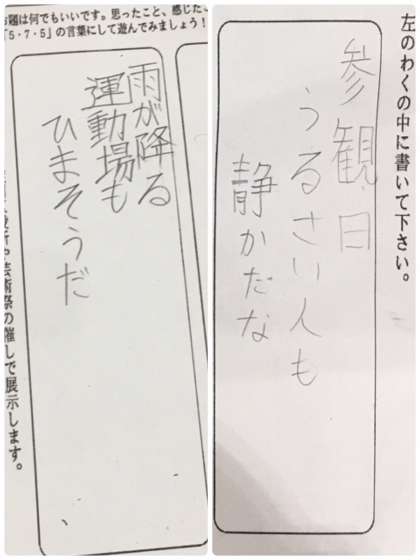 左のわくの中に書いて下さい。
参観日
うるさい人も
静かだな
お題は何でもいいです。思ったこと、感じたこ
「5・7・5」の言葉にして遊んでみましょう！
雨が降る
運動場も
ひまそうだ
芸術祭の催しで展示します。